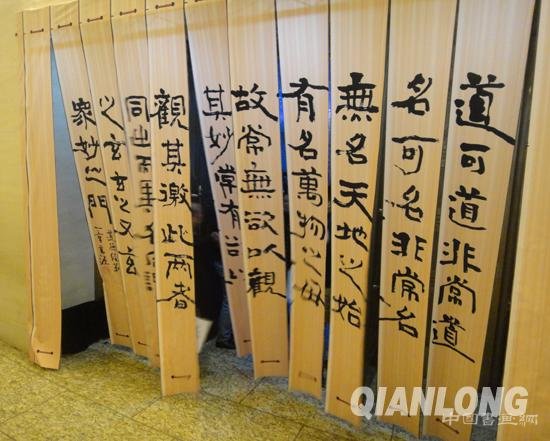 道可道非常道
名可名非常名
無名天地之始
有名萬物之母
故常無欲以觀
其妙常有欲以
觀其徼此兩者
同出而異名同謂
之玄玄之又玄
眾妙之門
QIANLONG
中国書画網